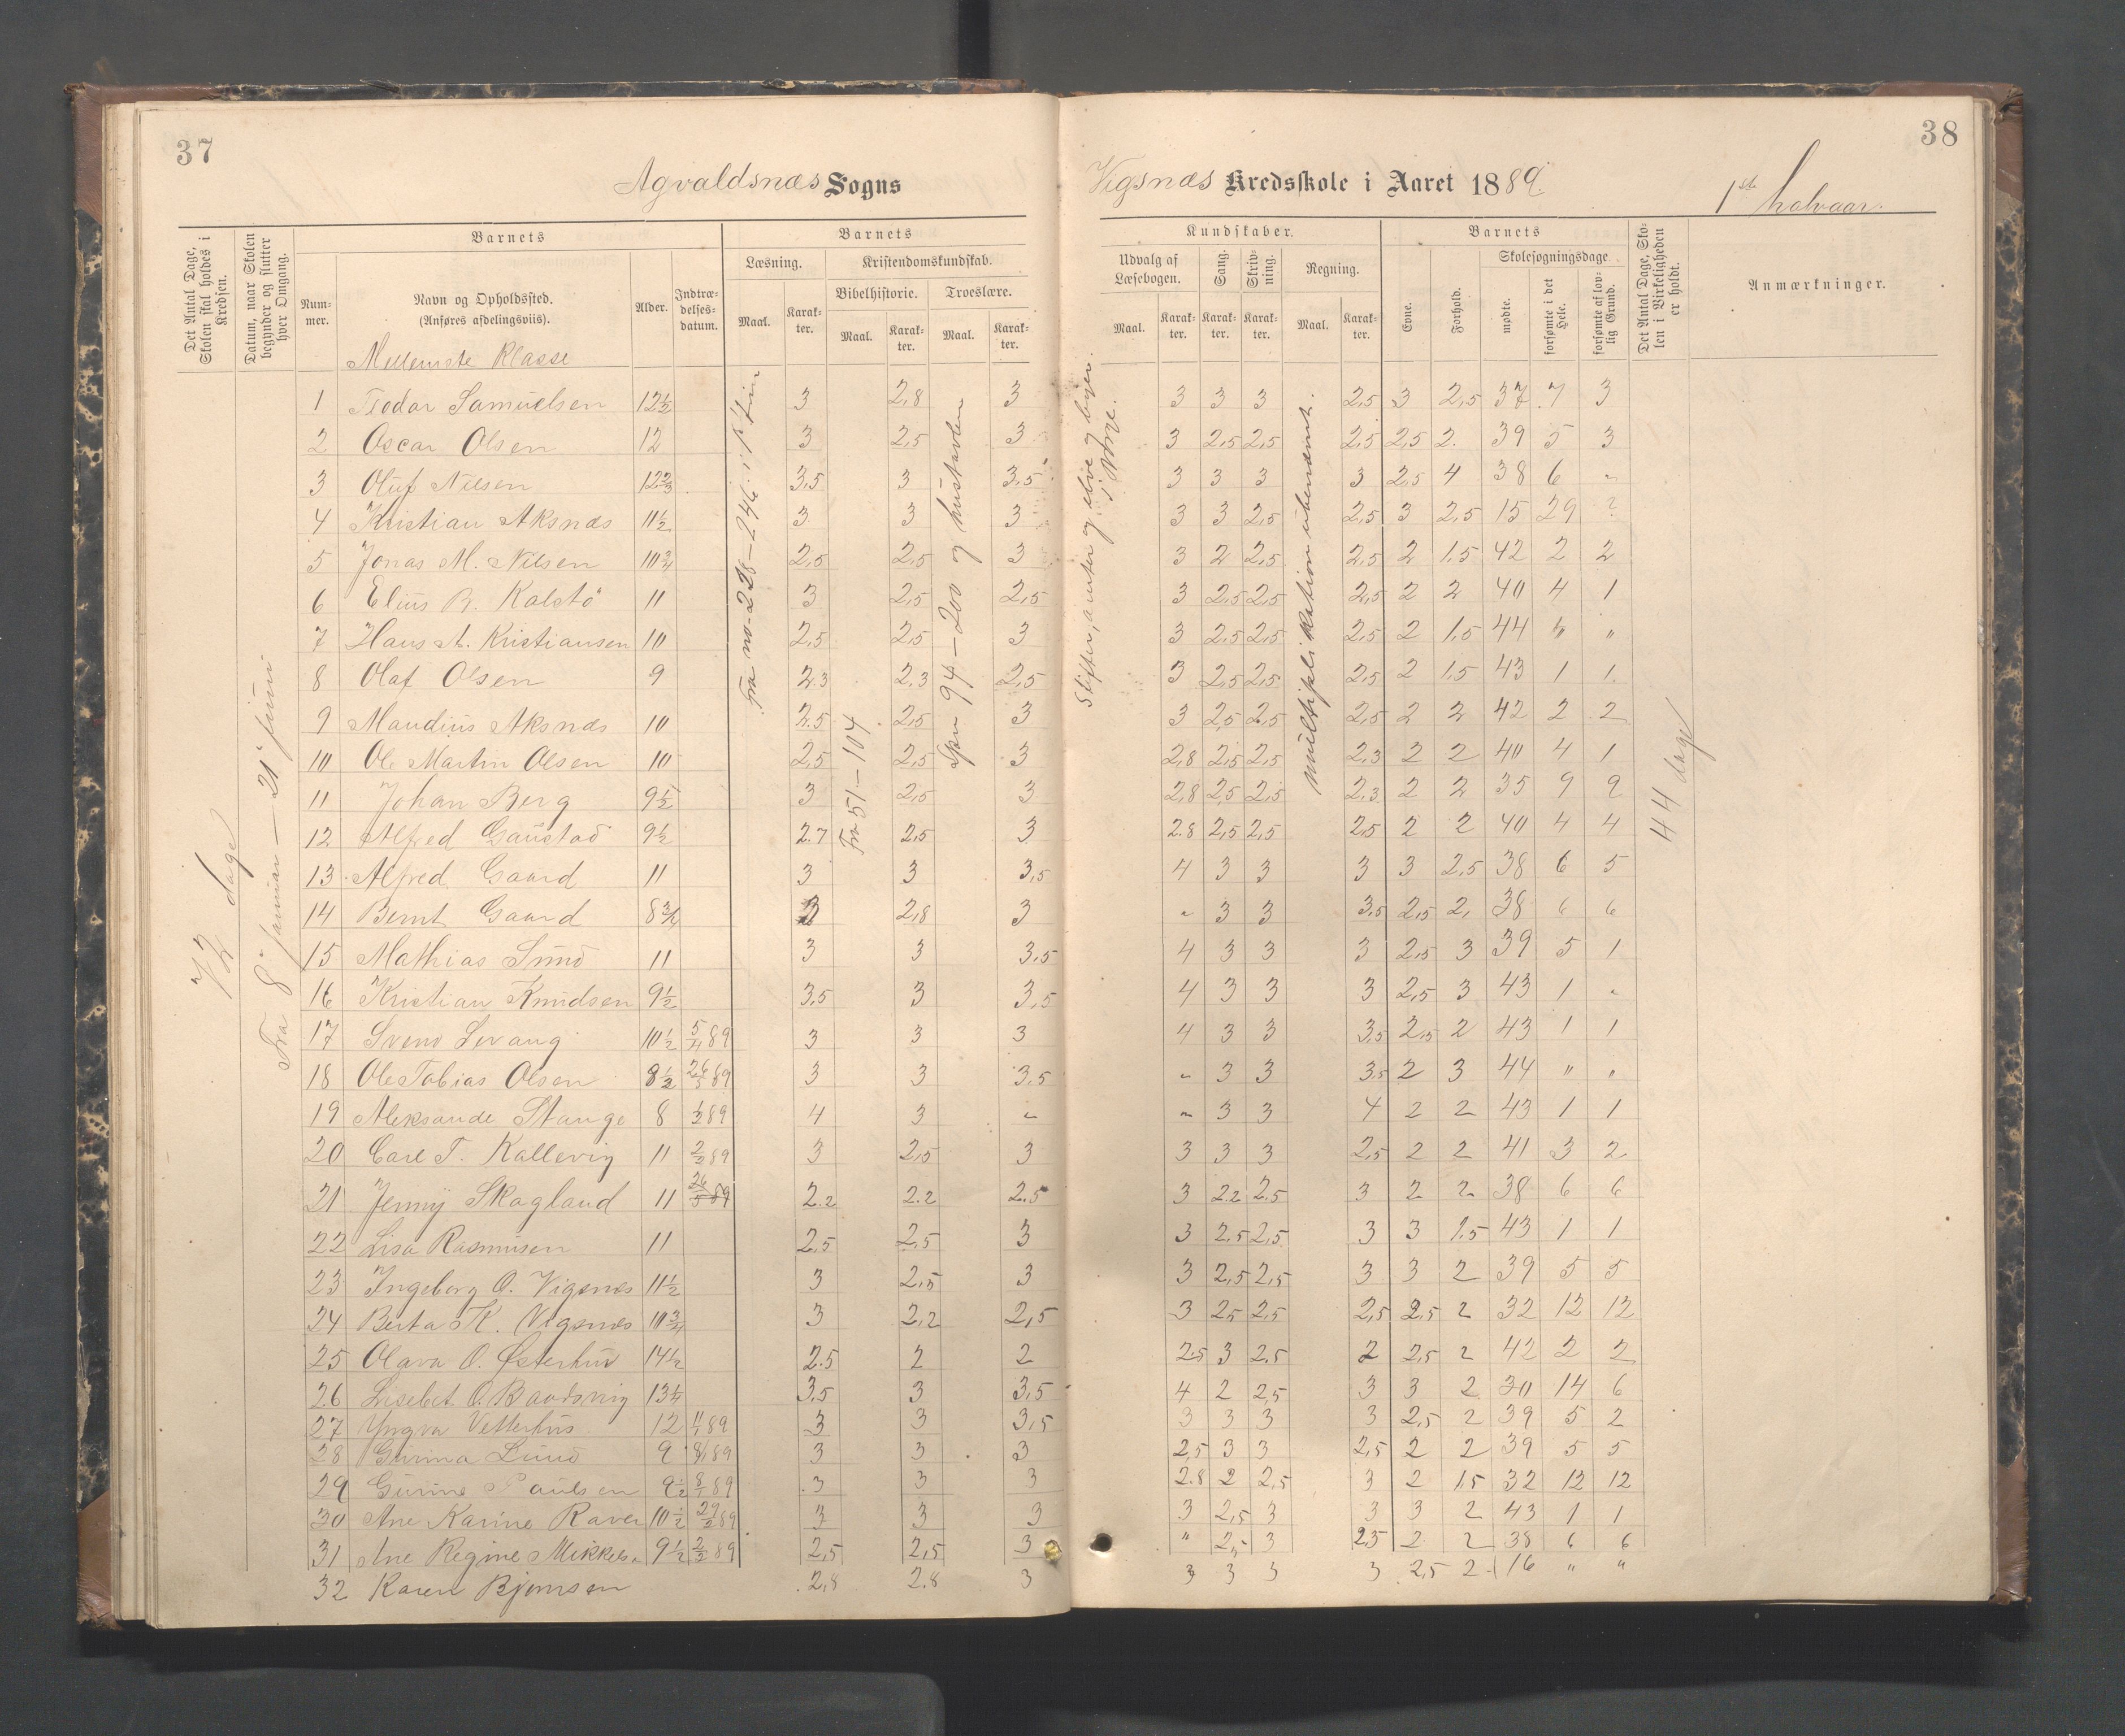 37
38
Agvaldsnæs Sogns
Vigsnæs Kredsskole i Aaret 1889.
1ste halvaar.
Det Antal Dage, Skolen skal holdes i Kredsen.
Datum, naar Skolen begynder og slutter hver Omgang.
Barnets
Nummer.
Navn og Opholdssted. (Anføres afdelingsviis).
Alder.
Indtrædelsesdatum.
Barnets
Læsning.
Kristendomskundskab.
Bibelhistorie.
Troeslære.
Maal.
Karakter.
Maal.
Karakter.
Maal.
Karakter.
Kundskaber.
Udvalg af Læsebogen.
Sang.
Skrivning.
Regning.
Maal.
Karakter.
Karakter.
Karakter.
Maal.
Karakter.
Barnets
Evne.
Forhold.
Skolesøgningsdage
mødte.
forsømte i det Hele.
forsømte af lovlig Grund.
Det Antal Dage, Skolen i Virkeligheden er holdt.
Anmærkninger.
Mellemste Klasse
72 dage
Fra 8de januar — 21de juni
Fra no- 228 — 246
Fra 51 — 104
Spm 94 — 200 og hustavlen
Stifter, amter og elve og byer i Norge.
multiplikation ubenævnt.
44 dage
1 Teodor Samuelsen 12½ 3 2,8 3 3 3 3 2,5 3 2,5 37 7 3
2 Oscar Olsen 12 3 2,5 3 3 2,5 2,5 2,5 2,5 2. 39 5 3
3 Oluf Nilsen 12⅔ 3,5 3 3,5 3 3 3 3 2,5 4 38 6 „
4 Kristian Aksnæs 11½ 3 3 3 3 3 2,5 2,5 3 2,5 15 29 ?
5 Jonas M. Nilsen 10¾ 2,5 2,5 3 3 2 2,5 2,5 2 1.5 42 2 2
6 Elius B. Kalstø 11 3 2,5 2,5 3 2,5 2,5 2,5 2 2 40 4 1
7 Hans A. Kristiansen 10 2,5 2,5 3 3 2,5 2,5 2,5 2 1.5 44 „ „
8 Olaf Olsen 9 2.3 2.3 2,5 3 2,5 2,5 2,5 2 1.5 43 1 1.
9 Maudius Aksnæs 10 2.5 2,5 3 3 2,5 2,5 2,5 2 2 42 2 2
10 Ole Martin Olsen 10 2,5 2,5 3 2,8 2,5 2,5 2.3 2 2 40 4 1
11 Johan Berg 9½ 3 2,5 3 2,8 2,5 2,5 2.3 2 2 35 9 9
12 Alfred Gaustad 9½ 2.7 2,5 3 2.8 2,5 2,5 2,5 2 2 40 4 4
13 Alfred Gaard 11 3 3 3,5 4 3 3 3 3 2,5 38 6 5
14 Bernt Gaard 8¾ 3 2,8 3 „ 3 3 3.5 2,5 2, 38 6 6
15 Mathias Lund 11 3 3 3,5 4 3 3 3 2,5 3 39 5 1
16 Kristian Knudsen 9½ 3,5 3 3,5 4 3 3 3 2,5 3 43 1 „
17 Svend Sevang 10½ 5/4 89 3 3 3 4 3 3 3,5 2,5 2 43 1 1
18 Ole Tobias Olsen 8½ 26/3 89 3 3 3,5 „ 3 3 3,5 2 3 44 „ „
19 Aleksander Stange 8 1/2 89 4 3 „ „ 3 3 4 2 2 43 1 1
20 Carl T. Kallevig 11 2/2 89 3 2,5 3 3 3 3 2,5 2 2 41 3 2
21 Jenny Skagland 11 26/3 89 2.2 2.2 2.5 3 2.2 2.5 3 2 2 38 6 6
22 Lisa Rasmusen 11 2,5 2,5 3 3 2,5 2,5 3 3 1.5 43 1 1
23 Ingeborg O. Vigsnæs 11½ 3 2,5 3 3 2,5 2,5 3 3 2 39 5 5
24 Berta K. Vigsnæs 10¾ 3 2,2 2,5 3 2,5 2,5 2,5 2,5 2 32 12 12
25 Olava O. Østerhus 14½ 2.5 2 2 2.5 3 2,5 2 2,5 2 42 2 2
26 Lisebet O. Baadsvig 13½ 3,5 3 3,5 4 2 2,5 3 3 2 30 14 6
27 Yngva Vetterhus 12 11/1 89 3 3 3,5 3 3 3 3 2,5 2 39 5 2
28 Gurina Lund 9 8/1 89 3 3 3 2,5 3 3 2,5 2 2 39 5 5
29 Gurine Paulsen 9½ 8/1 89 3 3 3 2.8 2 2,5 3 2 1.5 32 12 12
30 Ane Karine Raver 10½ 29/2 89 3 3 3 3 2,5 3 3 3 2 43 1 1
31 Ane Regine Mikkels. 9½ 2/2 89 2,5 2,5 3 „ 2,5 3 2,5 2 2 38 6 6
32 Karen Bjørnsen 2,8 2.8 3 3 3 3 3 2,5 2 16 „ „